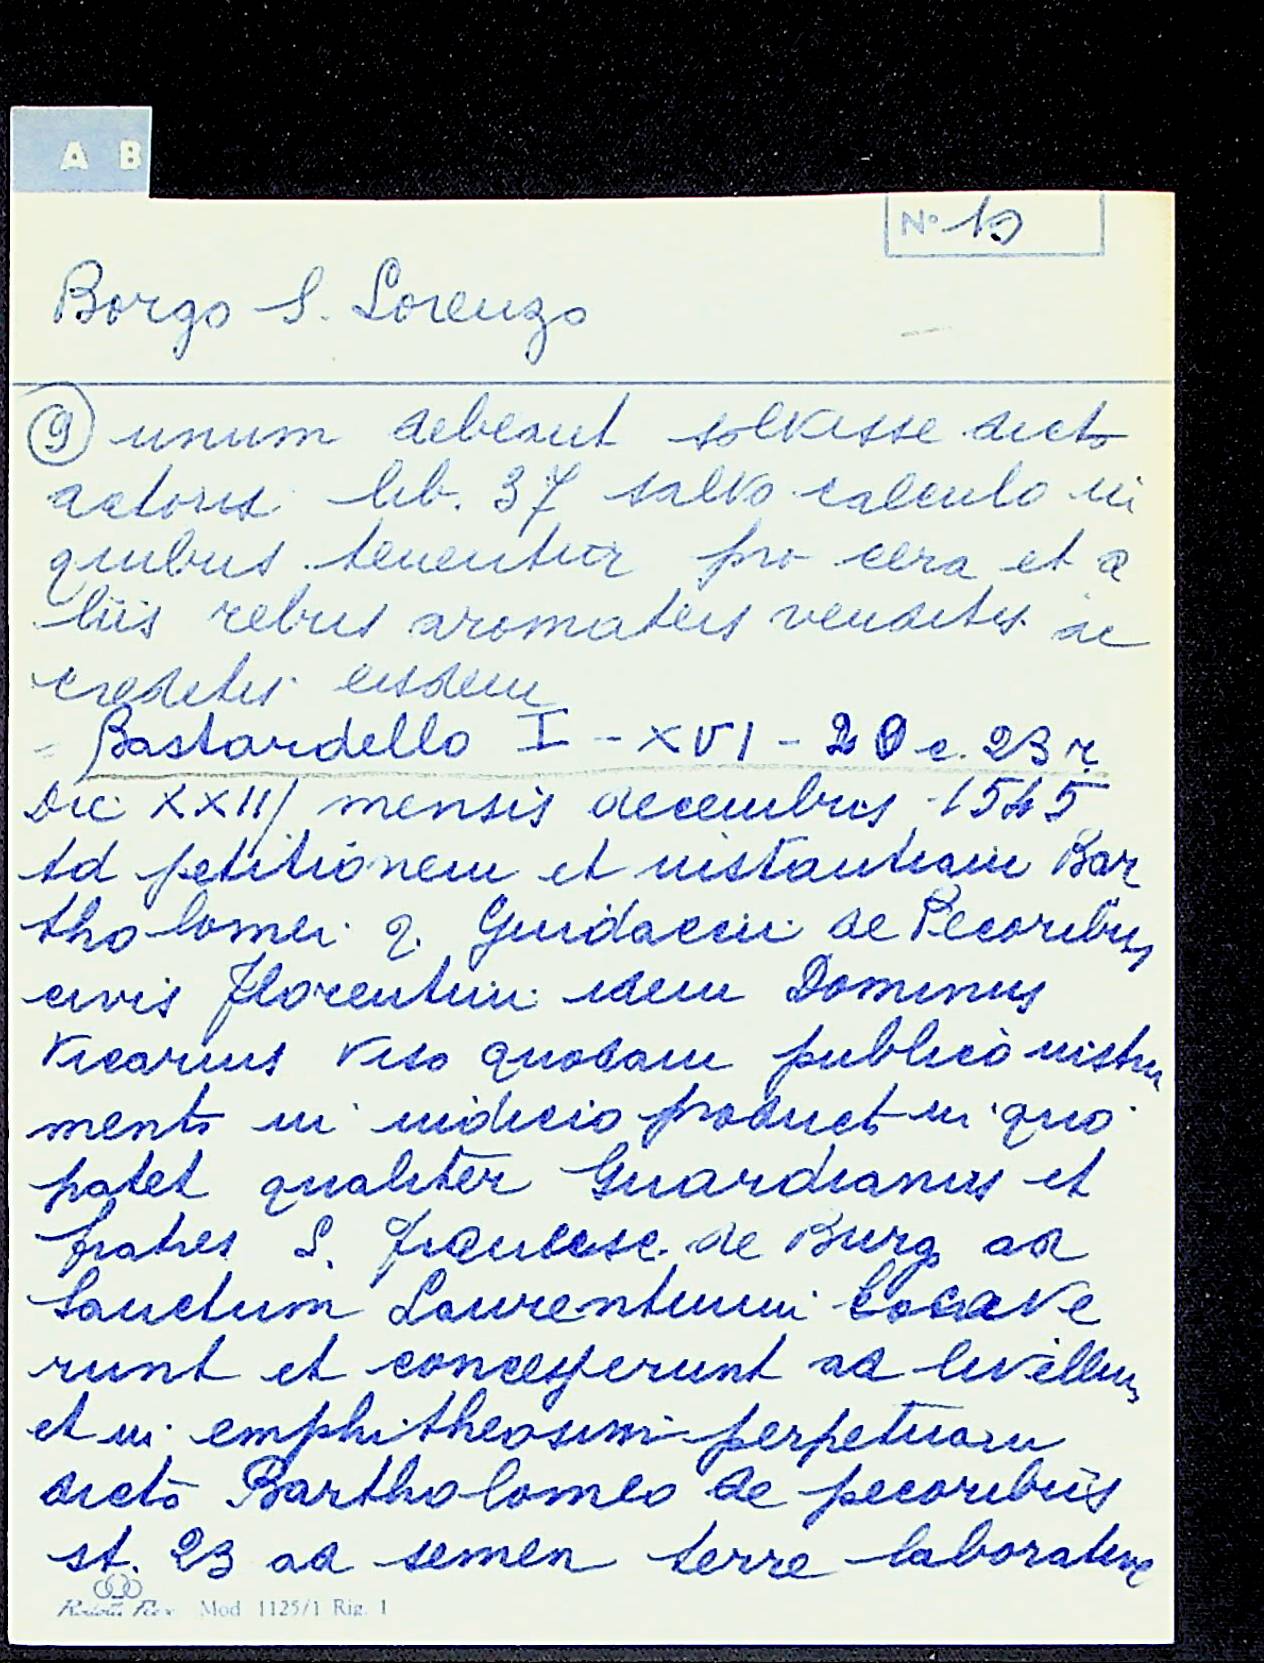 A B
N° 19
Borgo S. Lorenzo
9 unum debeant solvisse dicto
actoris lib. 37 salvo calculo in
quibus tenentur pro cera et a
liis rebus aromateis venditis ac
creditis eisdem
Bastardello I - XVI - 20 c. 23 r.
Die XXIII mensis decembris 1545
Ad petitionem et instantiam Bar
tholomei q. Guidaccini de Pecoribus
civis Florentini idem Dominus
Vicarius viso quodam publico instru
mento in iudicio producto in quo
patet qualiter Guardianus et
fratres S. Francesc. de Burg ad
Sanctum Laurentium locave
runt et concesserunt ad livellum
et in emphitheosim perpetuam
dicto Bartholomeo de pecoribus
st. 23 ad semen terre laborative
Mod 1125/1 Rig. 1